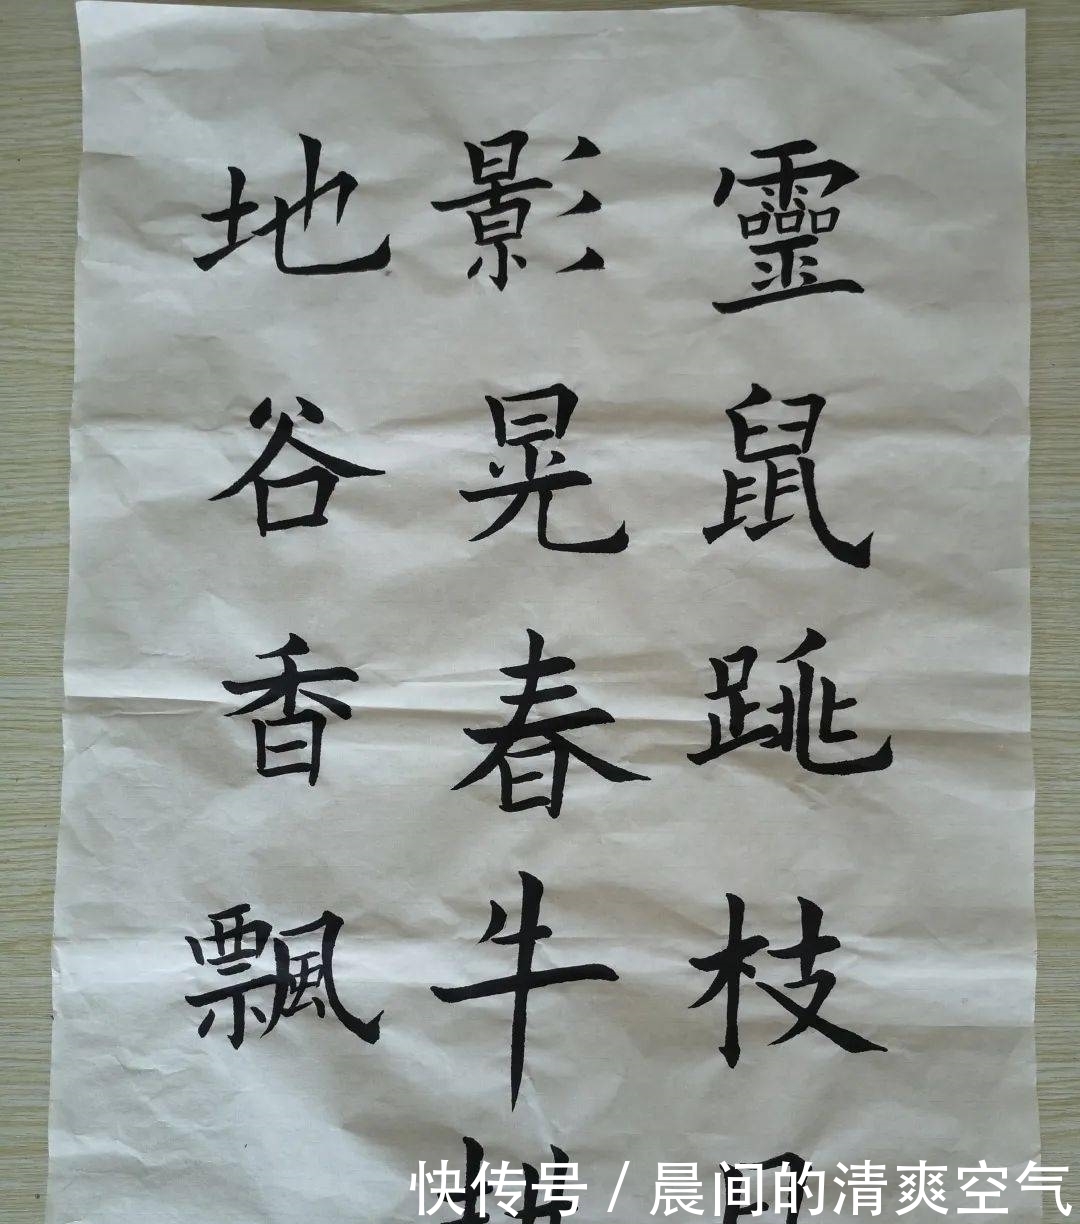 靈鼠跳枝
影晃春牛
地谷香飄
快传号 / 晨间的清爽空气